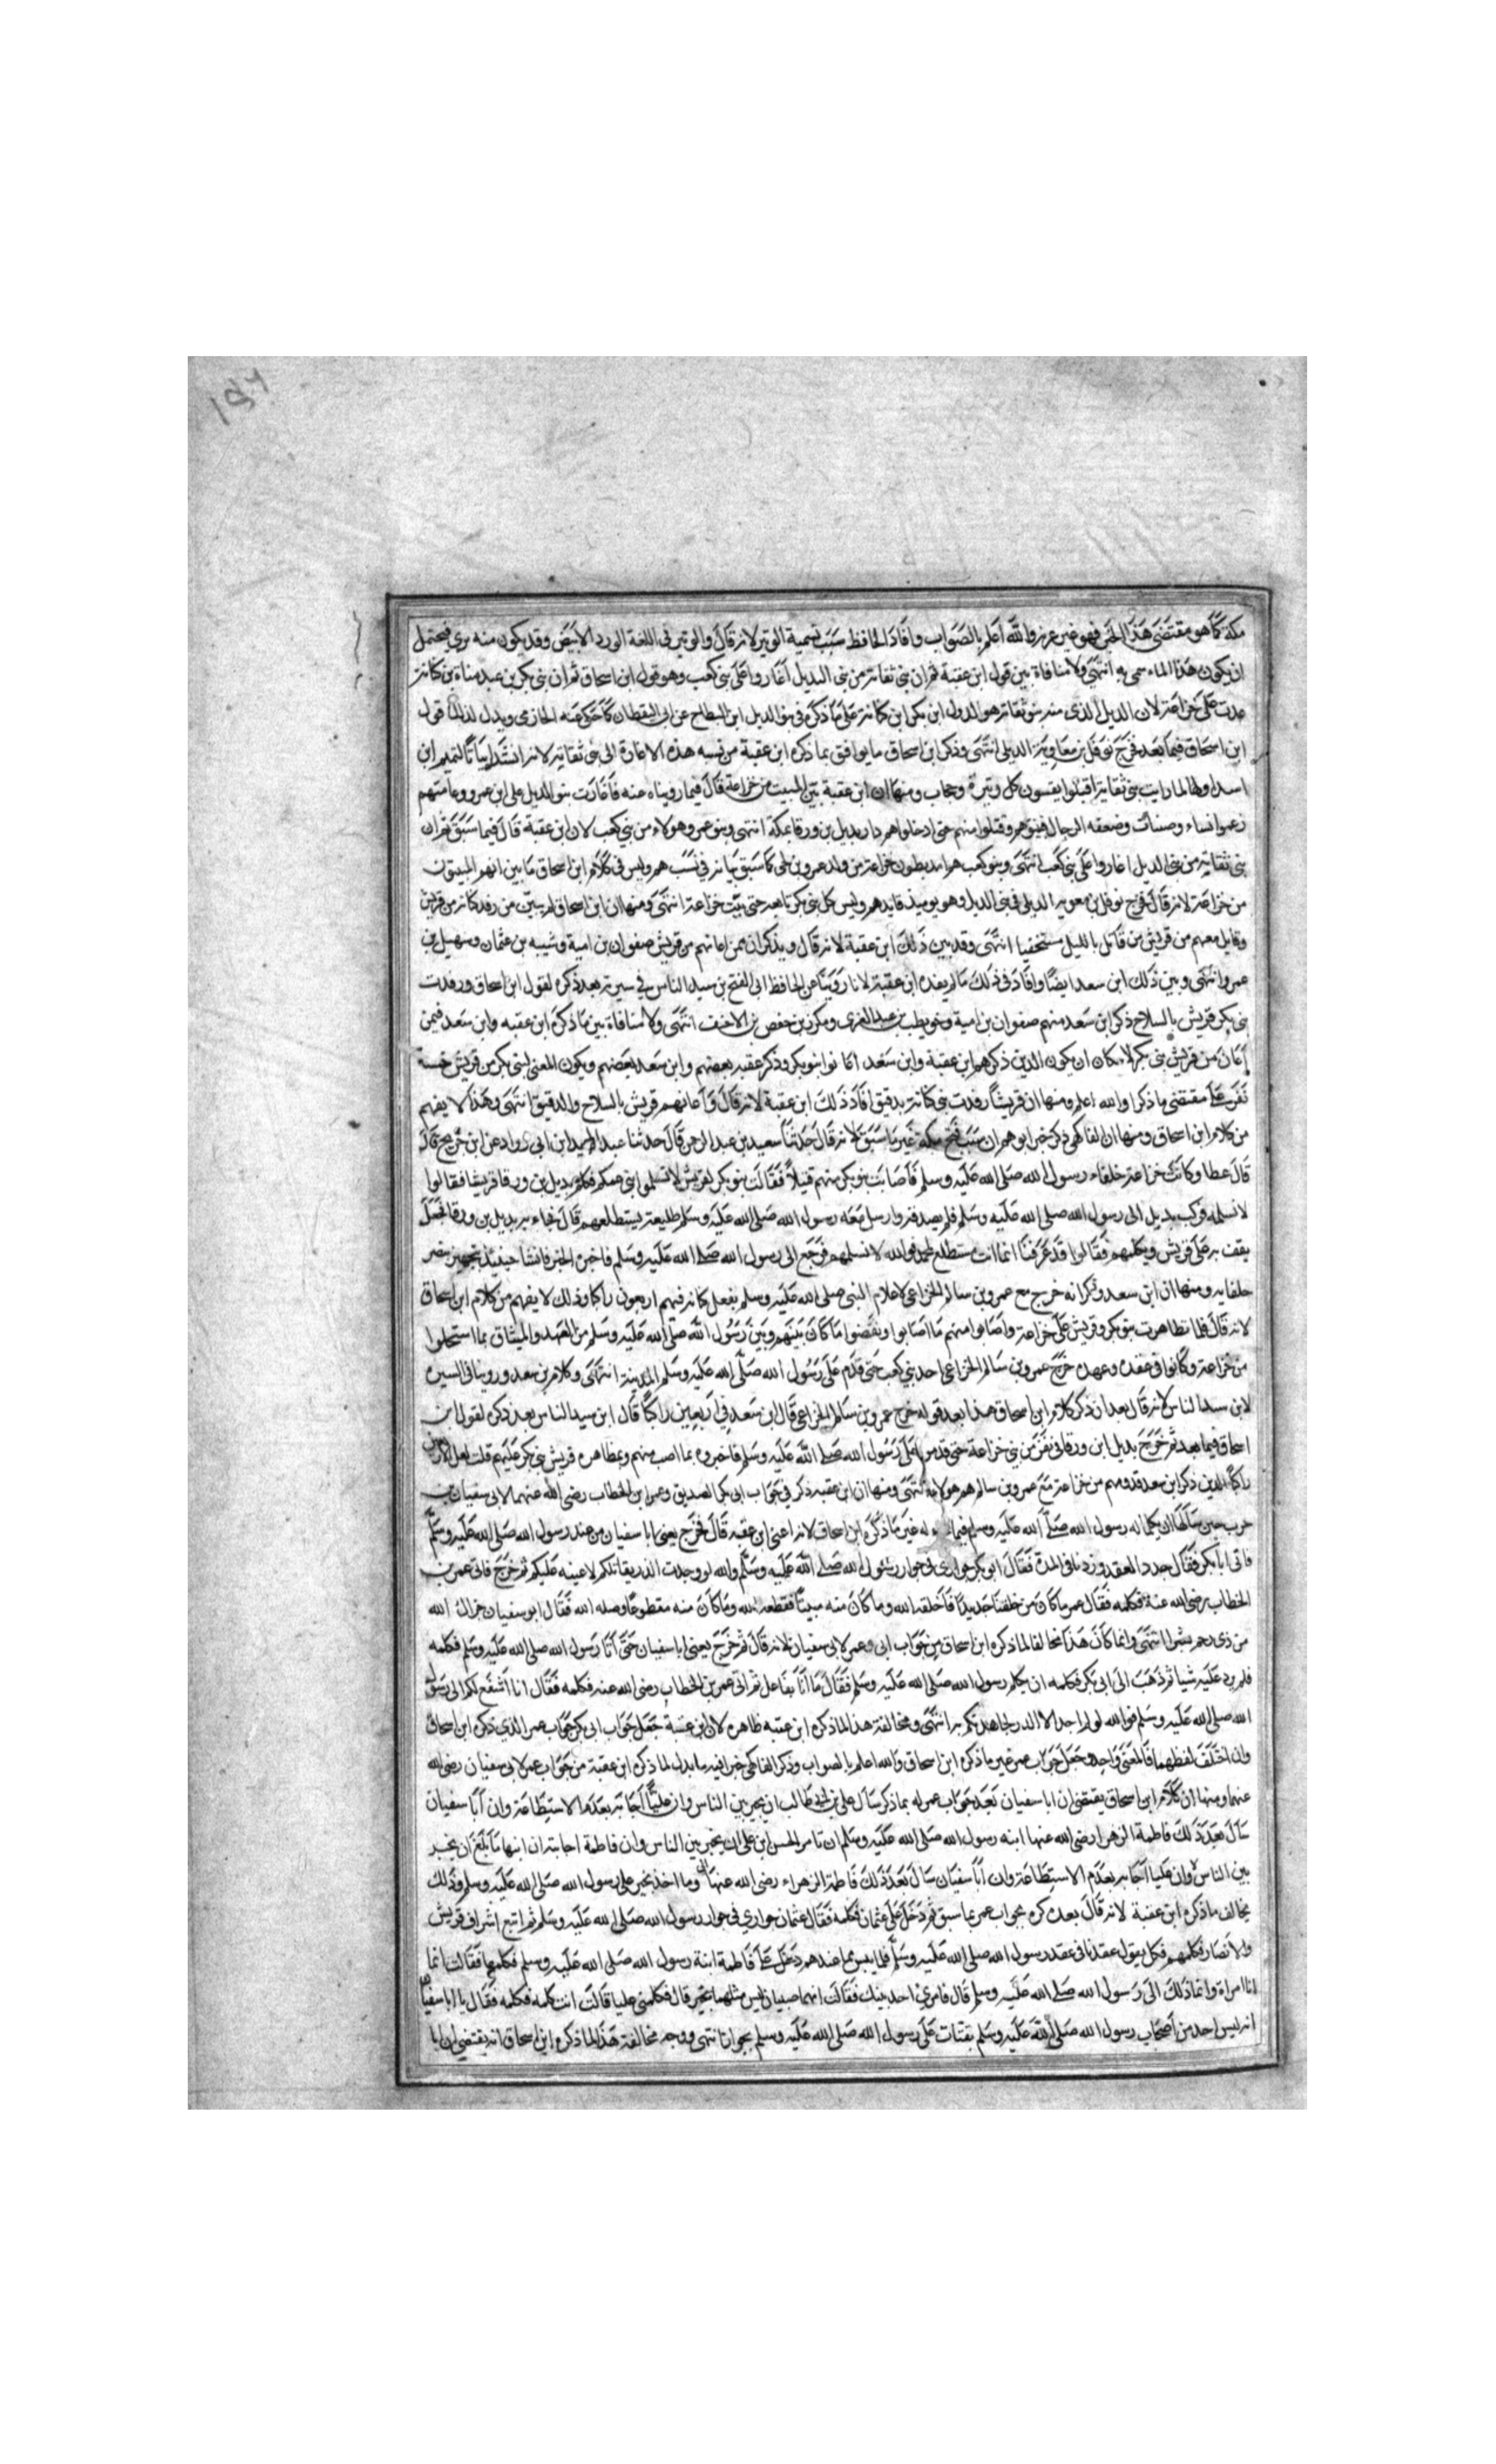 مكة كما هو مقتضى هذا الخبر فهو غير عرنة والله أعلم بالصواب وافاد الحافظ سبب تسمية الوتير لانه قال والوتير في اللغة الورد الابيض وقد يكون منه بري فيحتمل
ان يكون هذا الماء سمي به انتهى ولا منافاة بين قول ابن عقبة ثم ان بني نفاثة من بني الديل أغاروا على بني كعب وهو قول ابن اسحاق ثم ان بني بكر بن عبد مناة بن كنانة
عدت على خزاعة لان الديل الذي منه بنو نفاثة هو الدول ابن بكر ابن كنانة على ما ذكره في بنو الديل ابن البطاح عن ابي اليقظان كما حكى عنه الحازمي ويدل لذلك قول
ابن اسحاق فيما بعد فخرج نوفل بن معاوية الديلي انتهى وذكر ابن اسحاق ما يوافق بما ذكره ابن عقبة من نسبه هذه الاغارة الى بني نفاثة لانه انشد ابياتا لتميم ابن
اسد اولها لما رايت بني نفاثة اقبلوا يغشون كل وتيرة وحجاب ومنها ان ابن عقبة بين المبيت من خزاعة قال فيما رويناه عنه فأغارت بنو الديل على ابن عمرو وعامتهم
زعموا نساء وصبيان وضعفه الرجال فبيتوهم وقتلوا منهم حتى ادخلوهم دار بديل بن ورقا بمكة انتهى وبنو عمرو هولاء من بني كعب لان ابن عقبة قال فيما سبق ثم ان
بني نفاثة من بني الديل اغاروا على بني كعب انتهى وبنو كعب هم احد بطون خزاعة من ولد عمرو بن لحي كما سبق بيانه في نسب هم وليس في كلام ابن اسحاق ما يبين انهم المبيتون
من خزاعة لانه قال فخرج نوفل بن معوية الديلي في بني الديل وهو يوميذ قايدهم وليس كل بني بكر تابعه حتى بيت خزاعة انتهى ومنها ان ابن اسحاق لم يبين من رفد كنانة من قريش
وقاتل معهم من قريش من قاتل بالليل مستخفيا انتهى وقد بين ذلك ابن عقبة لانه قال ويذكر ان ممن اعانهم من قريش صفوان بن امية وشيبه بن عثمان وسهيل بن
عمرو انتهى وبين ذلك ابن سعد ايضا وافاد في ذلك ما لم يفده ابن عقبة لانا روينا عن الحافظ ابي الفتح بن سيد الناس في سيرته بعد ذكره لقول ابن اسحاق ورفدت
بني بكر قريش بالسلاح ذكر ابن سعد منهم صفوان بن امية وحويطب بن عبد العزى ومكرز بن حفص بن الاخيف انتهى ولا منافاة بين ما ذكره ابن عقبه وابن سعد فيمن
أعان من قريش بني بكر لامكان ان يكون الذين ذكرهم ابن عقبة وابن سعد اعانوا بنو بكر وذكر عقبه بعضهم وابن سعد بعضهم ويكون المعين لبني بكر من قريش خمسة
نفر على مقتضى ما ذكرا والله اعلم ومنها ان قريشا رفدت بني كنانة بدقيق افاد ذلك ابن عقبة لانه قال واعانهم قريش بالسلاح والدقيق انتهى وهذا لا يفهم
من كلام ابن اسحاق ومنها ان الفاكهي ذكر خبرا يوهم ان سبب فتح مكة غير ما سبق لانه قال حدثنا سعيد بن عبد الرحمن قال حدثنا عبد المجيد ابن ابي رواد عن ابن جريج قال
قال عطا وكانت خزاعة حلفاء رسول الله صلى الله عليه وسلم فأصابت بنو بكر منهم قتيلا فقالت بنو بكر لقريش لا تسلموا ابني عمكم فكلم بديل بن ورقا قريشا فقالوا
لا نسلمه فركب بديل الى رسول الله صلى الله عليه وسلم فلم يصدقه وارسل معه رسول الله صلى الله عليه وسلم طليعة يستطلعهم قال فجاء به بديل بن ورقا فجعل
يقف به على قريش ويكلمهم فقالوا قد عرفنا انما انت مستطلع لمحمد فوالله لا نسلمهم فرجع الى رسول الله صلى الله عليه وسلم فاخبره الخبر فانشا حينيذ تجهيز نصر
حلفايه ومنها ان ابن سعد ذكر انه خرج مع عمرو بن سالم الخزاعي لاعلام النبي صلى الله عليه وسلم بفعل كنانة فيهم اربعون راكبا وذلك لا يفهم من كلام ابن اسحاق
لانه قال فلما تظاهرت بنو بكر وقريش على خزاعة واصابوا منهم ما اصابوا ونقضوا ما كان بينهم وبين رسول الله صلى الله عليه وسلم من العهد والميثاق بما استحلوا
من خزاعة وكانوا في عقده وعهده خرج عمرو بن سالم الخزاعي احد بني كعب حتى قدم على رسول الله صلى الله عليه وسلم المدينة انتهى وكلام بن سعد وروينا في السيره
لابن سيد الناس لانه قال بعد ان ذكر كلام ابن اسحاق هذا بعد قوله خرج عمرو بن سالم الخزاعي قال ابن سعد في اربعين راكبا قال ابن سيد الناس بعد ذكره لقول ابن
اسحاق فيما بعد ثم خرج بديل ابن ورقا في نفر من بني خزاعة حتى قدم على رسول الله صلى الله عليه وسلم فاخبروه بما اصيب منهم وبمظاهره قريش بني بكر عليهم قلت لعل الاربعين
راكبا الذين ذكر ابن سعد قدومهم من خزاعة مع عمرو بن سالم هم هولاء انتهى ومنها ان ابن عقبه ذكر في جواب ابي بكر الصديق وعمر ابن الخطاب رضي الله عنهما لابي سفيان بن
حرب حين سألهما ان يكلما له رسول الله صلى الله عليه وسلم فيما له غير ما ذكره ابن اسحاق لانه اعني ابن عقبه قال فخرج يعني ابا سفيان من عند رسول الله صلى الله عليه وسلم
فاتى ابا بكر فقال جدد العقد وزدنا في المدة فقال ابو بكر جواري في جوار رسول الله صلى الله عليه وسلم والله لو وجدت الذر يقاتلكم لاعينه عليكم ثم خرج فاتى عمر بن
الخطاب رضي الله عنه فكلمه فقال عمر ما كان من حلفنا جديدا فأخلقه الله وما كان منه مبينا فقطعه الله وما كان منه مقطوعا وصله الله فقال ابو سفيان جزاك الله
من ذي رحم بشرا انتهى وانما كان هذا مخالفا لما ذكره ابن اسحاق من جواب ابي وعمر لابي سفيان لانه قال ثم خرج يعني ابا سفيان حتى أتا رسول الله صلى الله عليه وسلم فكلمه
فلم يرد عليه شيا ثم ذهب الى ابي بكر فكلمه ان يكلم رسول الله صلى الله عليه وسلم فقال ما أنا بفاعل ثم اتى عمر بن الخطاب رضي الله عنه فكلمه فقال انا أشفع لكم الى رسول
الله صلى الله عليه وسلم فوالله لو لم اجد الا الذر لجاهدتكم به انتهى ومخالفة هذا لما ذكره ابن عقبه ظاهره لان ابن عقبة جعل جواب ابي بكر جواب عمر الذي ذكره ابن اسحاق
وان اختلف لفظهما فالمعنى واحد وجعل جواب عمر غير ما ذكره ابن اسحاق والله اعلم بالصواب وذكر الفاكهي خبرا فيه ما يدل لما ذكره ابن عقبة من جواب عمر لابي سفيان رضي الله
عنهما ومنها ان كلام ابن اسحاق يقتضي ان ابا سفيان بعد جواب عمر له بما ذكر سأل علي بن ابي طالب ان يجير بين الناس وان عليا أجابه بعدم الاستطاعة وان أبا سفيان
سأل بعد ذلك فاطمة الزهرا رضي الله عنها ابنه رسول الله صلى الله عليه وسلم ان تامر الحسن ابن علي ان يجير بين الناس وان فاطمة اجابته ان ابنها ما بلغ ان يجير
بين الناس وان عليا أجابه بعدم الاستطاعة وان أبا سفيان سأل بعد ذلك فاطمة الزهراء رضي الله عنها وما احد يجير على رسول الله صلى الله عليه وسلم وذلك
يخالف ما ذكره ابن عقبة لانه قال بعد ذكره بجواب عمر بما سبق ثم دخل على عثمان فكلمه فقال عثمان جواري في جوار رسول الله صلى الله عليه وسلم ثم اتبع اشراف قريش
والانصار فكلمهم فكل يقول عقدنا في عقد رسول الله صلى الله عليه وسلم فلما يئس مما عندهم دخل على فاطمة ابنة رسول الله صلى الله عليه وسلم فكلمها فقالت انما
انا امراة وانما ذلك الى رسول الله صلى الله عليه وسلم قال فامري احد بنيك فقالت انهما صبيان ليس مثلهما يجير قال فكلمي عليا قالت انت كلمه فكلمه فقال يا ابا سفيان
انه ليس احد من أصحاب رسول الله صلى الله عليه وسلم يفتات على رسول الله صلى الله عليه وسلم بجوار انتهى ووجه مخالفة هذا لما ذكره ابن اسحاق انه يقتضي ان ابا